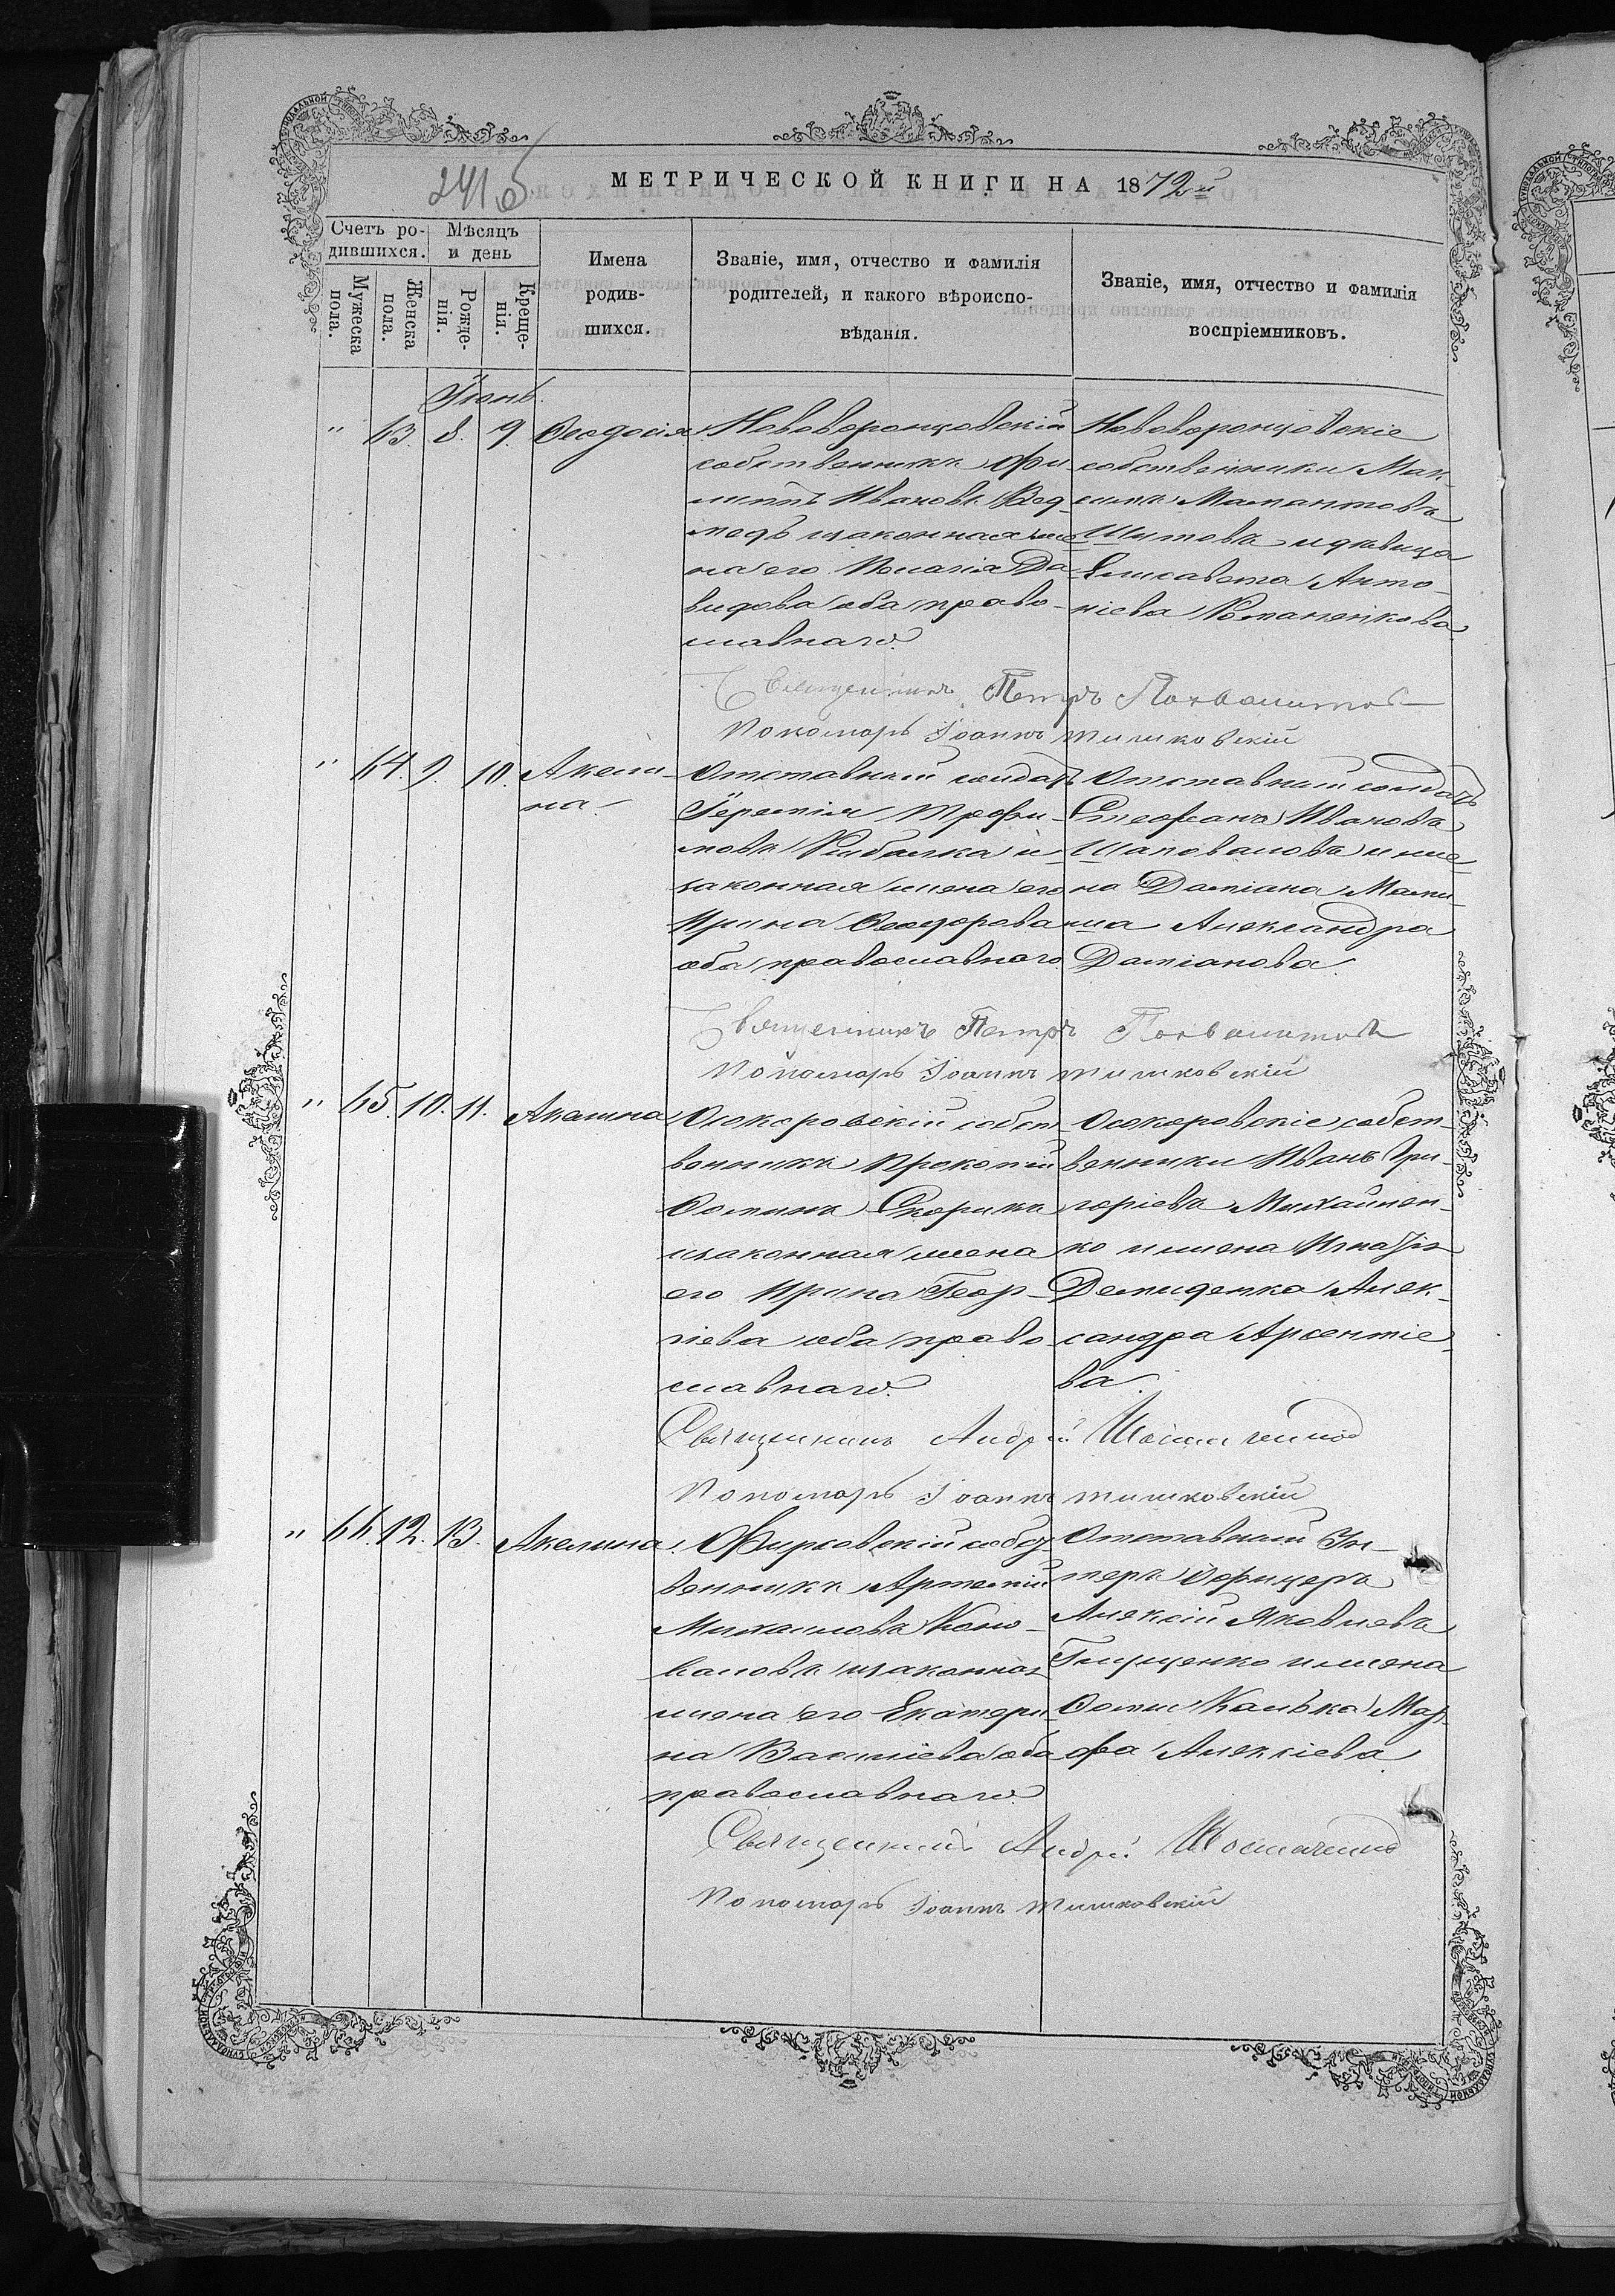 241 б
МЕТРИЧЕСКОЙ КНИГИ НА 1872й
Счетъ ро-
дившихся.
Мужеска
пола.
Женска
пола.
Мѣсяцъ
и день
Рожде-
нія.
Креще-
нія.
Имена
родив-
шихся.
Званіе, имя, отчество и фамилія
родителей, и какого вѣроиспо-
вѣданія.
Званіе, имя, отчество и фамилія
воспріемниковъ.
Іюнь.
" 63. 8. 9. Ѳеодосія
Нововоронцовскій
собственникъ Фи-
липпъ Ивановъ Вед-
медь и законная же-
на его Пелагія Да-
видова оба право-
славнаго.
Нововоронцовскіе
собственники Мак-
симъ Мамантовъ
Шутовъ и дѣвица
Елисавета Анто-
ніева
Священникъ Петръ
Пономарь Іоаннъ Тишковскій
" 64. 9. 10. Акели-
на.
Отставный солдатъ
Іеремія Трофи-
мовъ Рыбалка и
законная жена его
Ирина Ѳеодорова
оба православнаго.
Отставный солдатъ
Стефанъ Ивановъ
Шаповаловъ и же-
на Даміана
Александра
Даміанова.
Священникъ Петръ
Пономарь Іоаннъ Тишковскій
" 65. 10. 11. Акелина
Осокоровскій собст-
венникъ Прокопій
Ѳоминъ Скорикъ
и законная жена
его Ирина Геор-
гіева оба право-
славнаго.
Осокоровскіе собст-
венники Иванъ Гри-
горіевъ Михайлен-
ко и жена Игнатія
Демиденка Алек-
сандра Арсентіе-
ва.
Священникъ Андрей
Пономарь Іоаннъ Тишковскій
" 66. 12. 13. Акелина.
Фирсовскій собст-
венникъ Артемій
Михаиловъ Коно-
валовъ и законная
жена его Екатери-
на Василіева оба
православнаго.
Отставный Ун-
теръ Офицеръ
Алексій Яковлевъ
и жена
Ѳомы Калька Мар-
фа Алексіева
Священникъ Андрей
Пономарь Іоаннъ Тишковскій